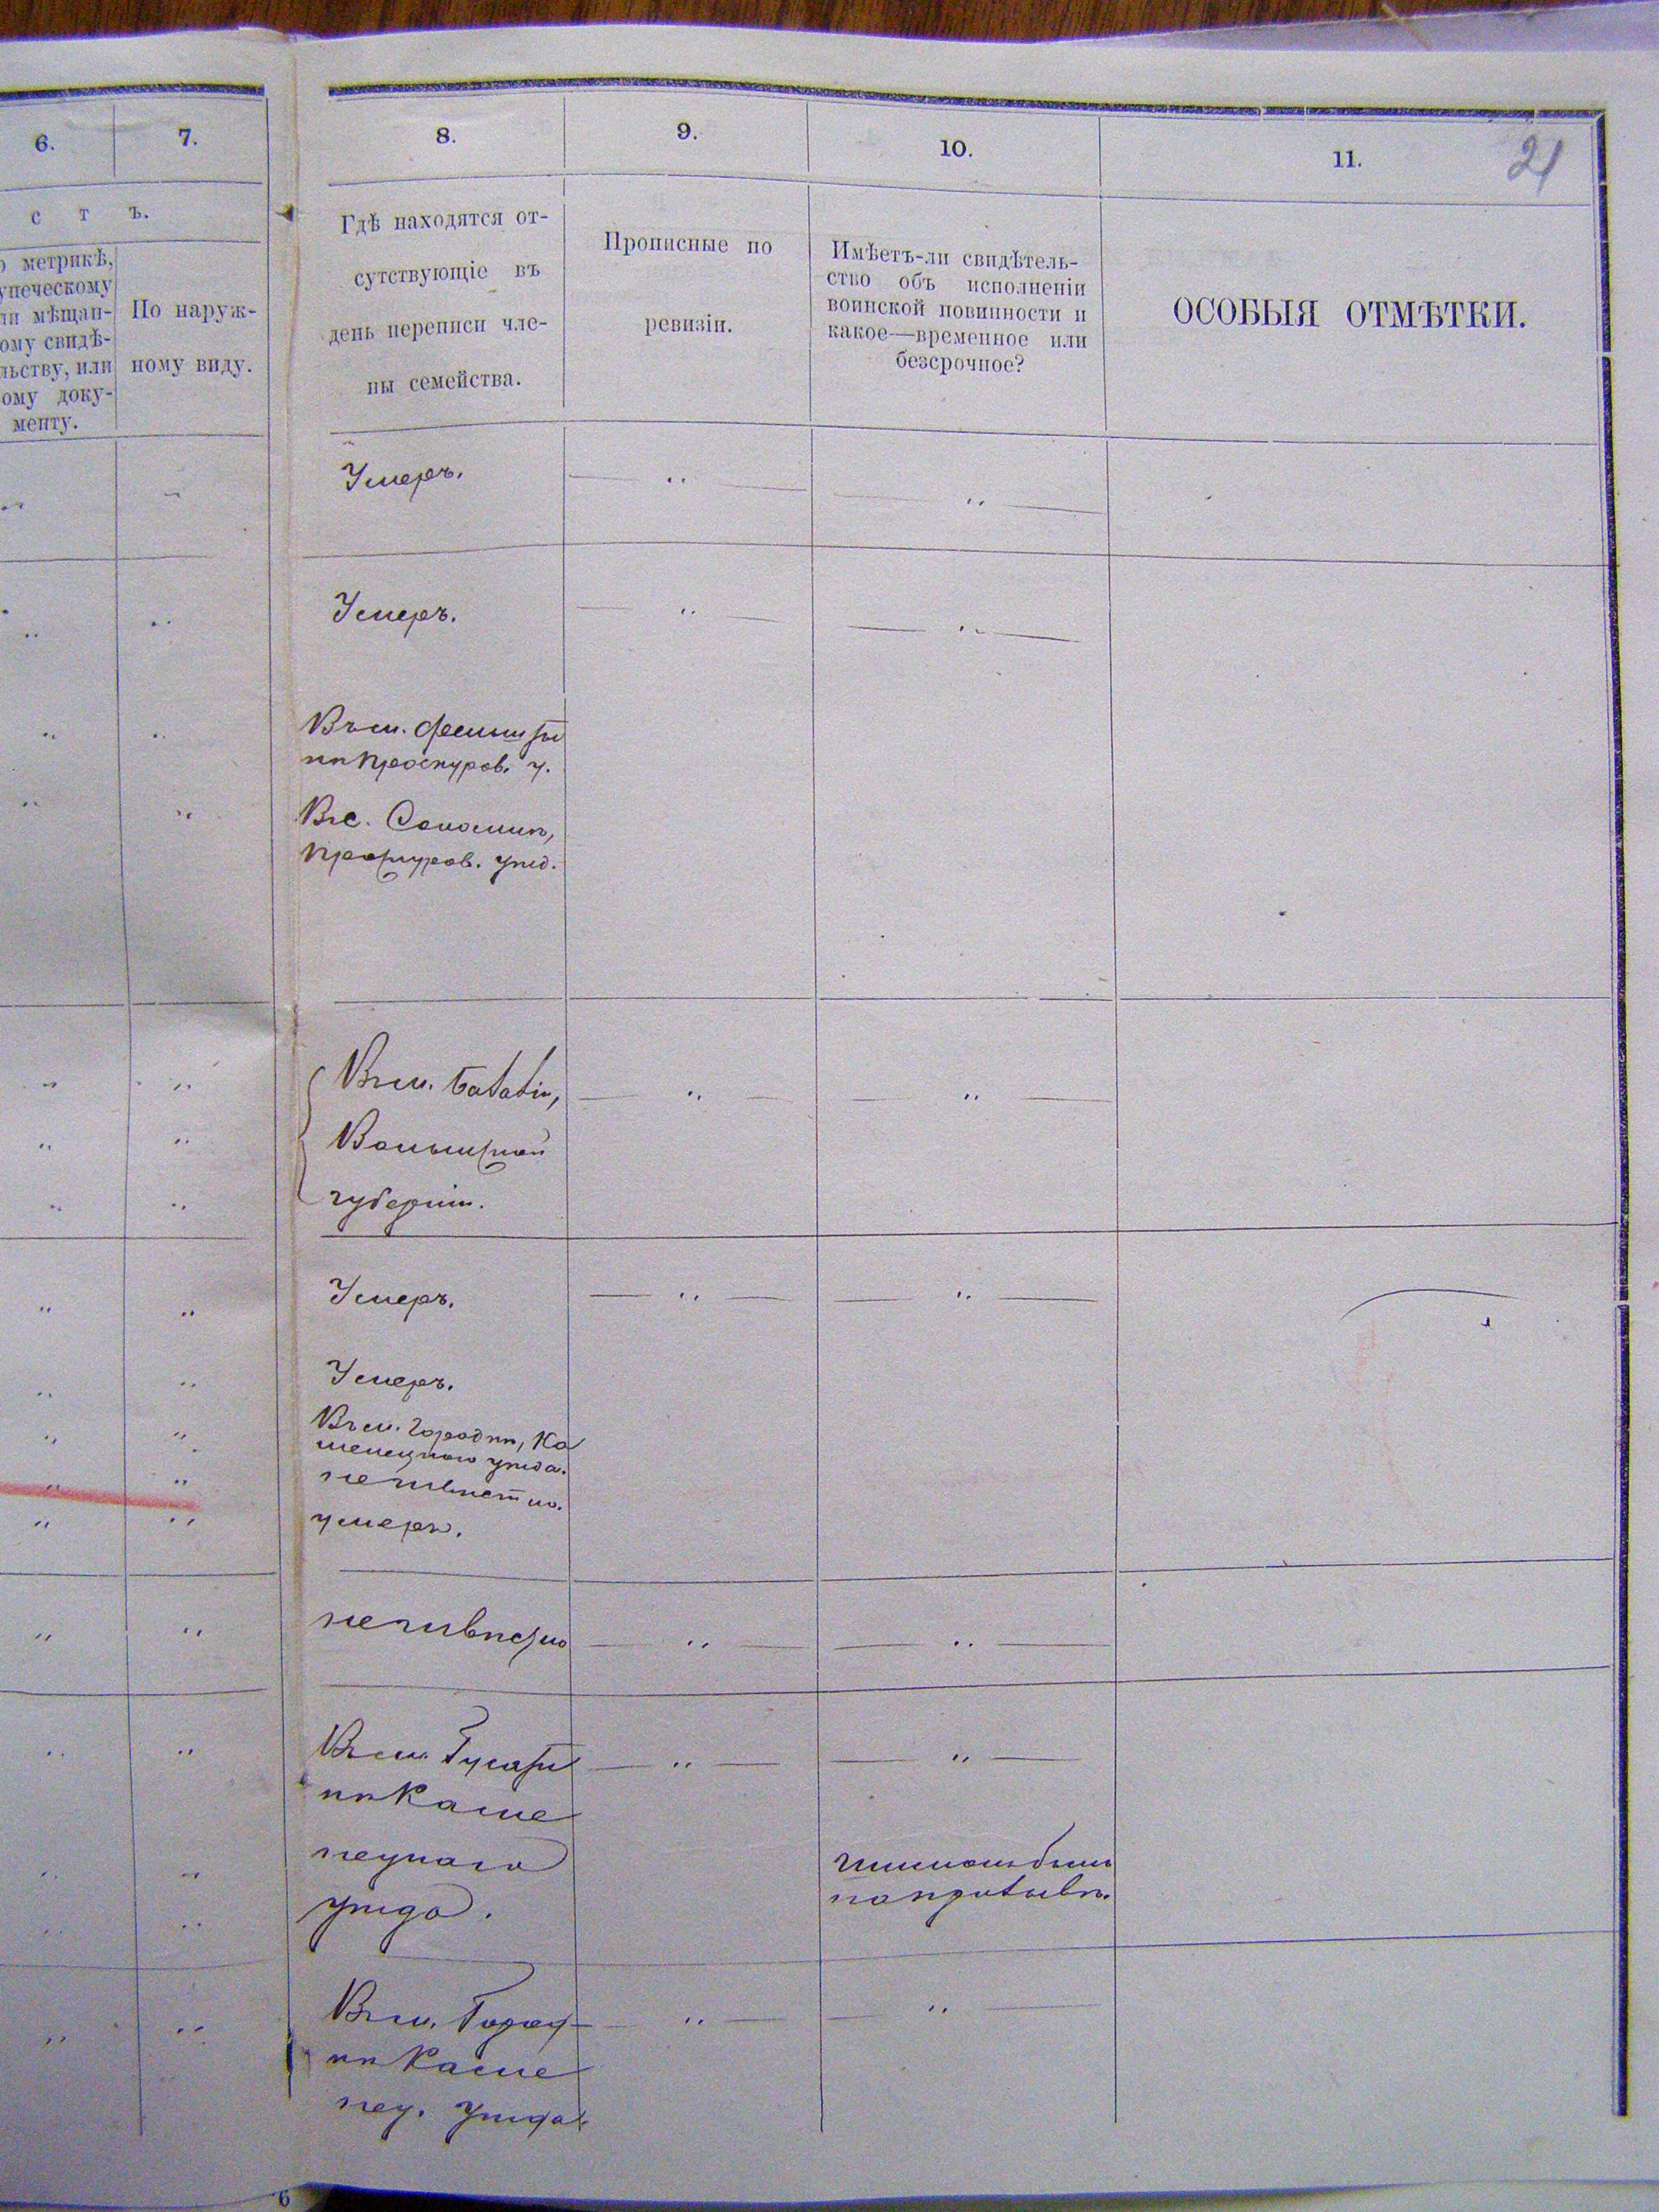 6.
7.
8.
9.
10.
11.
21
с т ъ.
метрикѣ,
упеческому
ли мѣщан-
ому свидѣ-
льству, или
ому доку-
менту.
По наруж-
ному виду.
Гдѣ находятся от-
сутствующіе въ
день переписи чле-
ны семейства.
Прописные по
ревизіи.
Имѣетъ-ли свидѣтель-
ство объ исполненіи
воинской повинности и
какое—временное или
безсрочное?
ОСОБЫЯ ОТМѢТКИ.
Умеръ.
Умеръ.
Въ м. Фельшты
Проскуров. у.
Въ с.
Проскуров. уѣзд.
Въ м.
Волынской
губерніи.
Умеръ.
Умеръ.
Въ м. Городкѣ, Ка
менецкаго уѣзда.
неизвѣстно.
умеръ.
неизвѣстно
Въ м. Гусяти
нѣ Каме
нецкаго
уѣзда.
Въ м. Город
кѣ Каме
нец. уѣзда
6